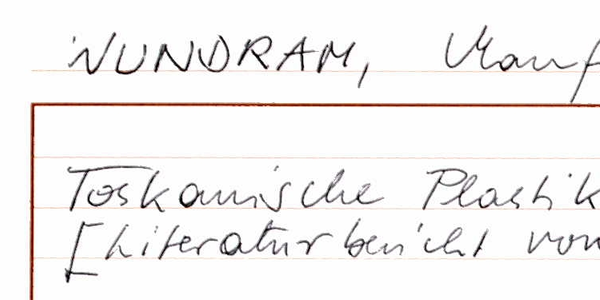 WUNDRAM, Manf
Toskanische Plastik
[Literaturbericht von